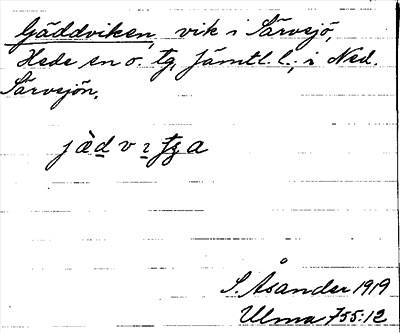 Gäddviken, vik i Särvsjö,
Hede sn o. tg, Jämtl. l., i Ned.
Särvsjön.
S. Åsander 1919
Ulma 755:12